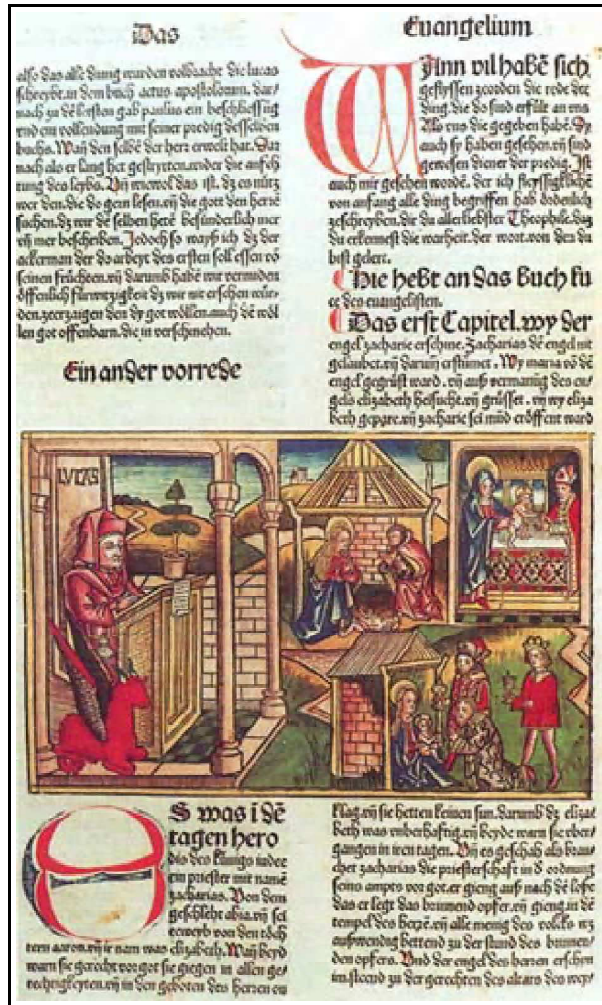 Das
Euangelium
also das alle ding wurden volbracht die lucas
schreybt in dem buch actus apostolorum. dar/
nach zu dē lersten gab paulus ein beschliessūg
vnd ein vollendung mit seiner predig desselben
buchs. Wañ den selbē der herr erwelt hat. Dar
nach als er lang het gestrytten wider die anfeh
tung des leybs. Vñ wiewol das ist. dz es nütz
wer den. die do gern lesen. vñ die gott den herrē
suchen. dz wir dē selben hetē besunderlich mer
vñ mer beschriben. Jedoch so wayß ich dz der
ackerman der do arbeyt des ersten soll essen vō
seinen früchten. vñ darumb habē wir vermiden
öffenlich fürwitzigkeit dz wir nit ersehen wür/
den. zeerzaigen den dy got wöllen. auch dē wöl
len got offenbarn. die in verschmehen.
Ein ander vorrede
Wann vil habē sich
geflyssen zeorden die rede der
ding. die do sind erfült an vns
Als vns die gegeben habē. Dy
auch sy haben gesehen. vñ sind
gewesen diener der predig. Ist
auch mir gesehen wordē. der ich fleyssigklichē
von anfang alle ding begriffen hab ordenlich
zeschreyben. dir du allerliebster Theophile. das
du erkennest die warheit. der wort. von den du
bist gelert.
Hie hebt an das buch lu
ce des euangelisten.
Das erst Capitel. wy der
engel zacharie erschine. Zacharias dē engel nit
gelaubet. vñ darum erstumet. Wy maria vō dē
engel gegrüst ward. vñ auß vermanūg des en/
gels elizabeth heisucht. vñ grüsset. vñ wy eliza
beth gepare. vñ zacharie sei mūd eröffent ward
LVCAS
ES was i dē
tagen hero
dis des künigs iudee
ein priester mit namē
zacharias. Von dem
geschlecht abia. vñ sei
eeweyb von den töch
tern aaron. vñ ir nam was elizabeth. Wañ beyd
warn sie gerecht vor got sie giegen in allen ge/
rechtigkeyten. vñ in den geboten des herren on
klag. vñ sie hetten keinen sun. darumb dz eliza/
beth was vnberhaftig. vñ beyde warn sie vber/
gangen in iren tagen. Vñ es geschah als brau/
chet zacharias die priesterschaft in d ordnung
seins ampts vor got. er gieng auß nach dē loße
das er legt das brinnend opfer. vñ gieng in dē
tempel des herrē. vñ alle menig des volcks wz
außwendig bettend zu der stund des brinnen/
den opfers. Vnd der engel des herren erschin
im steend zu der gerechten des altars des wey/